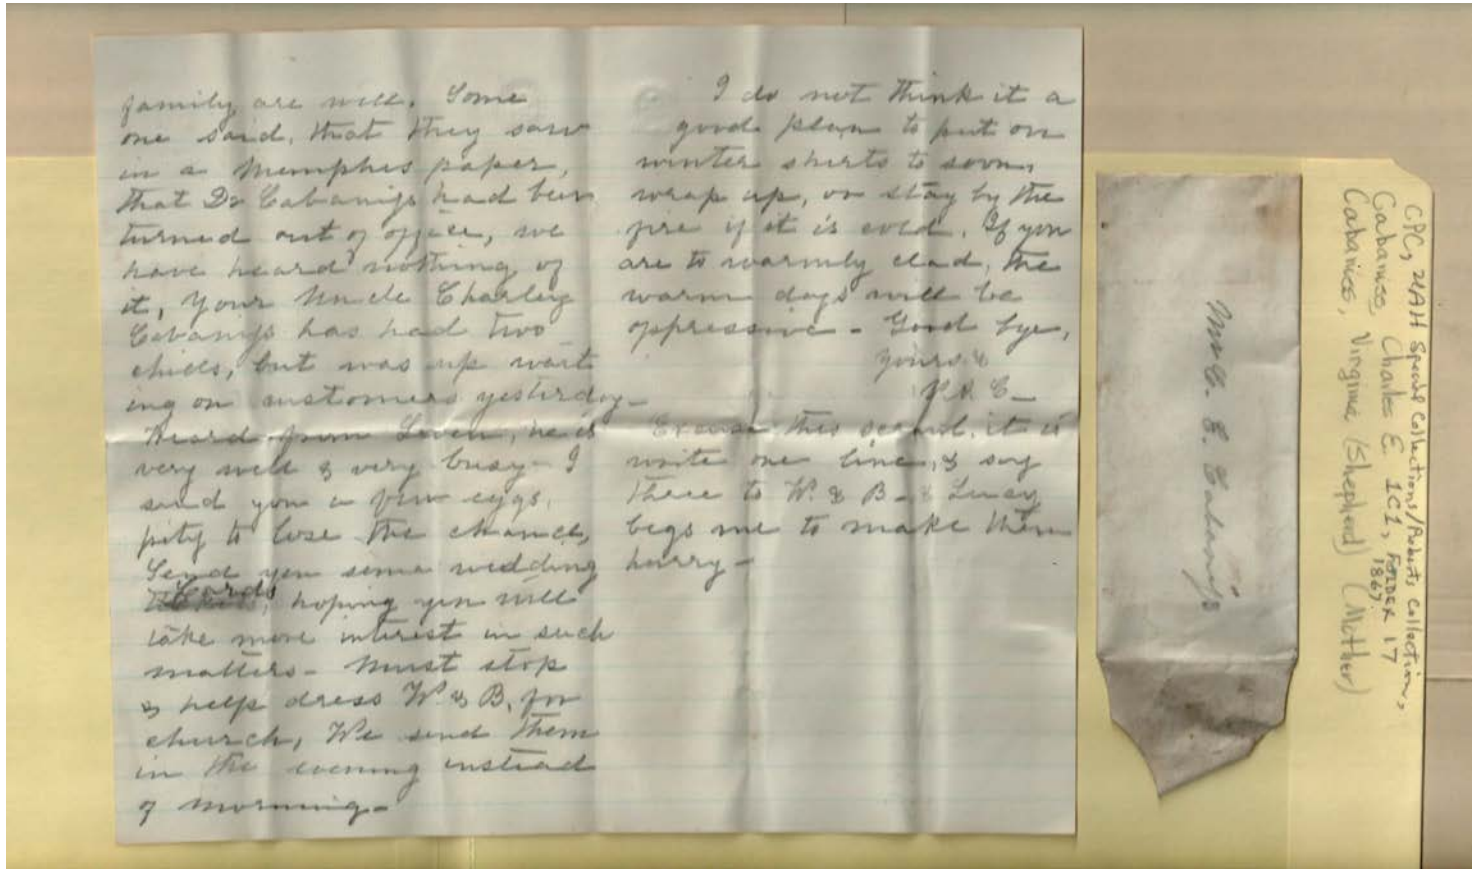 family are well. Some
one said, that they saw
in a Memphis paper,
that Dr Cabaniss had been
turned out of office, we
have heard nothing of
it, Your Uncle Charley
Cabaniss has had two
chills, but was up wait
ing on customers yesterday—
Heard from Leven, he is
very well & very busy— I
send you a few eggs,
pity to lose the chance,
Send you some wedding
Cards, hoping you will
take more interest in such
matters— Must stop
& help dress W. & B. for
church, We send them
in the evening instead
of morning—
I do not think it a
good plan to put on
winter shirts to soon,
wrap up, or stay by the
fire if it is cold. If you
are to warmly clad, the
warm days will be
oppressive— Good bye,
yours &
V. A. C—
Excuse this scrawl, it is
write one line, & say
there to W. & B— & Lucy
begs me to make them
hurry—
Mr C. E. Cabaniss
CPC, UAH Special Collections/Roberts Collection,
Cabaniss, Charles E. 1C1, FOLDER 17
1867
Cabaniss, Virginia (Shepherd) (Mother)